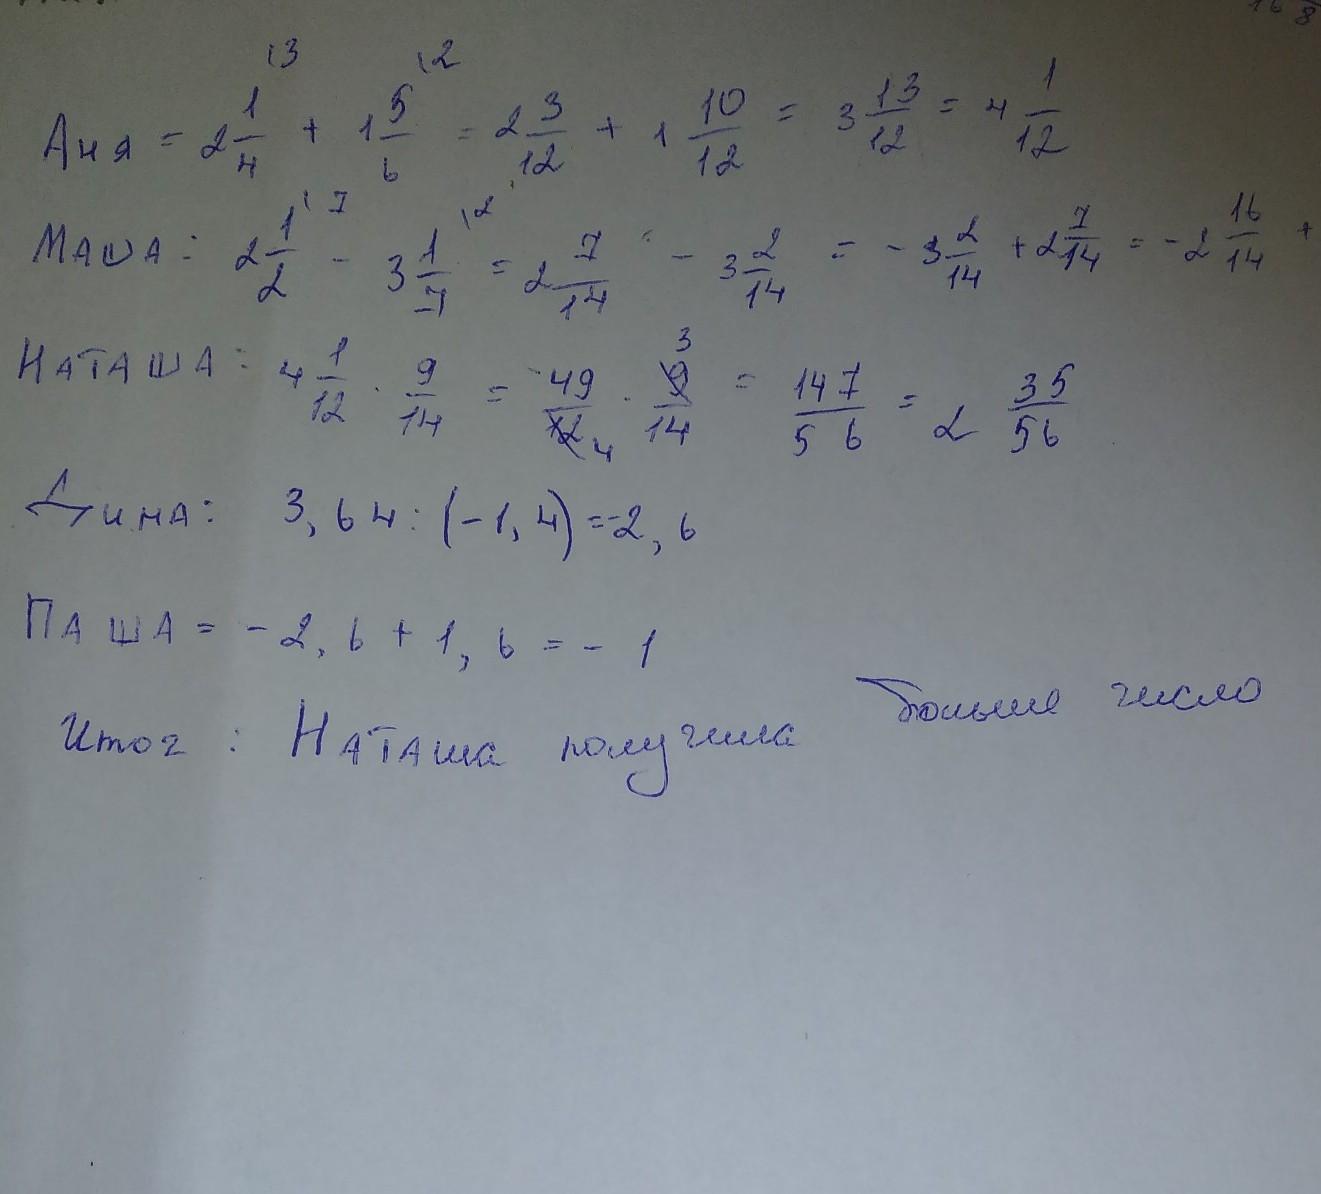 16/8
Аня = 2 1/4 \3 + 1 5/6 \2 = 2 3/12 + 1 10/12 = 3 13/12 = 4 1/12
Маша: 2 1/2 \7 - 3 1/7 \2 = 2 7/14 - 3 2/14 = - 3 2/14 + 2 7/14 = - 2 16/14 +
Наташа: 4 1/12 · 9/14 = 49/12 4 · 9/14 3 = 147/56 = 2 35/56
Дина: 3,64 : (-1,4) = -2,6
Паша = - 2,6 + 1,6 = - 1
Итог : Наташа получила больше число